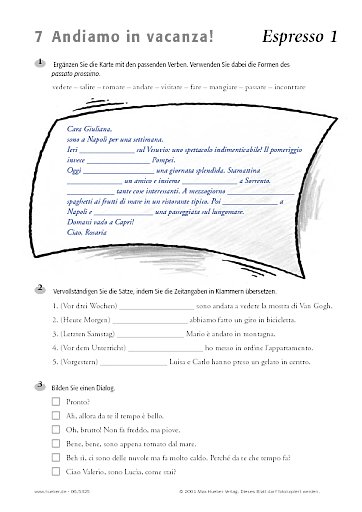 7 Andiamo in vacanza!
Espresso 1
1 Ergänzen Sie die Karte mit den passenden Verben. Verwenden Sie dabei die Formen des
passato prossimo.
vedere – salire – tornare – andare – visitare – fare – mangiare – passare – incontrare
Cara Giuliana,
sono a Napoli per una settimana.
Ieri ______________ sul Vesuvio: uno spettacolo indimenticabile! Il pomeriggio
invece ________________ Pompei.
Oggi ______________ una giornata splendida. Stamattina
______________ un amico e insieme ______________ a Sorrento.
____________ tante cose interessanti. A mezzogiorno ________________
spaghetti ai frutti di mare in un ristorante tipico. Poi ______________ a
Napoli e ______________ una passeggiata sul lungomare.
Domani vado a Capri!
Ciao. Rosaria
2 Vervollständigen Sie die Sätze, indem Sie die Zeitangaben in Klammern übersetzen.
1. (Vor drei Wochen) __________________ sono andata a vedere la mostra di Van Gogh.
2. (Heute Morgen) __________________ abbiamo fatto un giro in bicicletta.
3. (Letzten Samstag) ________________ Mario è andato in montagna.
4. (Vor dem Unterricht) __________________ ho messo in ordine l'appartamento.
5. (Vorgestern) ________________ Luisa e Carlo hanno preso un gelato in centro.
3 Bilden Sie einen Dialog.
Pronto?
Ah, allora da te il tempo è bello.
Oh, brutto! Non fa freddo, ma piove.
Bene, bene, sono appena tornato dal mare.
Beh sì, ci sono delle nuvole ma fa molto caldo. Perché da te che tempo fa?
Ciao Valerio, sono Lucia, come stai?
© 2001 Max Hueber Verlag. Dieses Blatt darf fotokopiert werden.